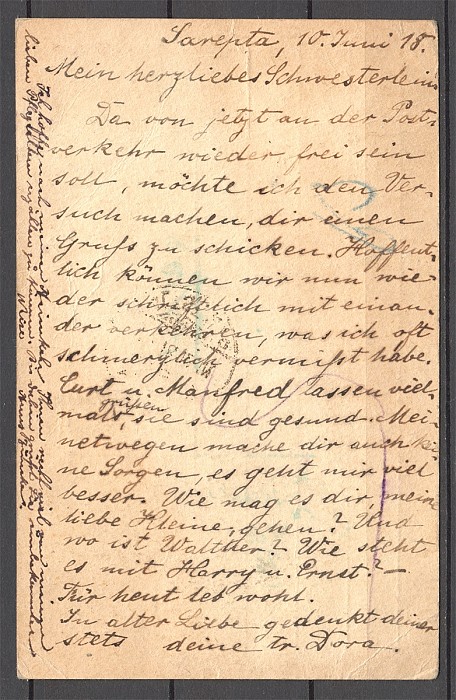 Sarepta, 10. Juni 18.
Mein herzliebes Schwesterlein.
Da von jetzt an der Post-
verkehr wieder frei sein
soll, möchte ich den Ver-
such machen, dir einen
Gruß zu schicken. Hoffent-
lich können wir nun wie-
der schriftlich mit einan-
der verkehren, was ich oft
schmerzlich vermißt habe.
Curt u. Manfred lassen viel-
mals grüßen, sie sind gesund. Mei-
netwegen mache dir auch kei-
ne Sorgen, es geht mir viel
besser. Wie mag es dir, meine
liebe Kleine, gehen? Und
wo ist Walther? Wie steht
es mit Harry u. Ernst? –
Für heut leb wohl.
In alter Liebe gedenkt deiner
stets deine tr. Dora.
Ich hoffe nach meiner
lieben